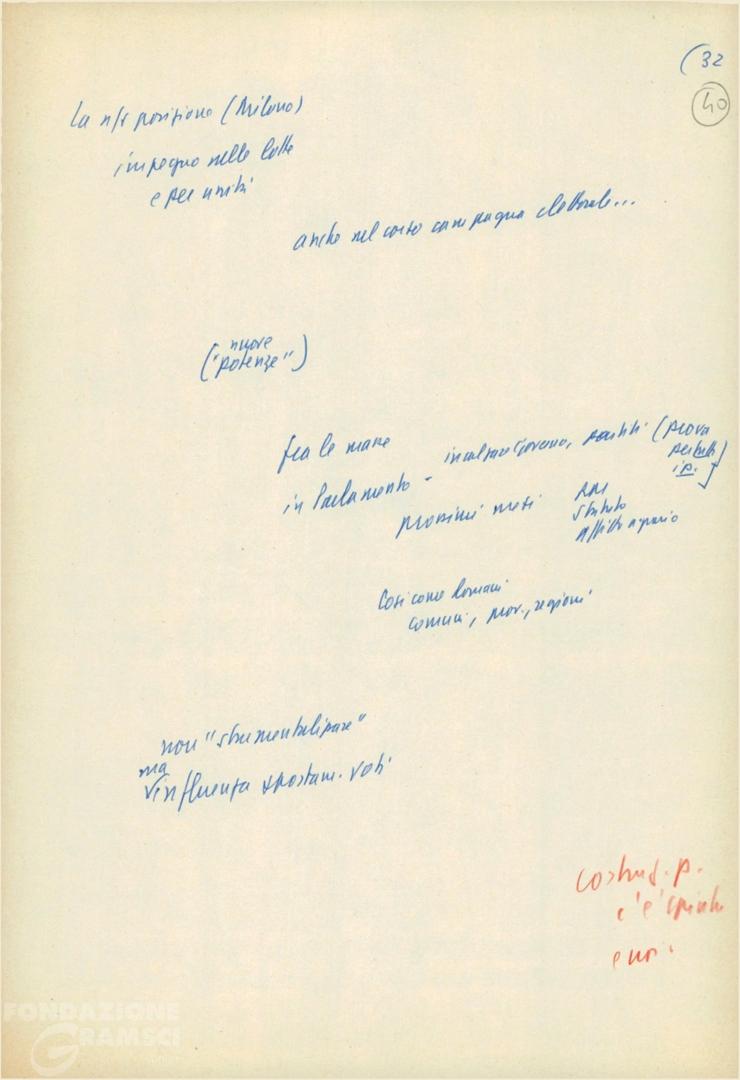 (32
40
La n/s posizione (Milano)
impegno nelle lotte
e per unità
anche nel corso campagna elettorale...
nuore
("potenze")
fra le mane
in Parlamento - governo, partiti (prova
i.p.
prossimi mesi
RAI
statuto
affitto agrario
Così come domani
comuni, prov., regioni
non "strumentalizzare"
ma
influenza spostam. voti
costruz. p.
c'è
e noi
FONDAZIONE
GRAMSCI